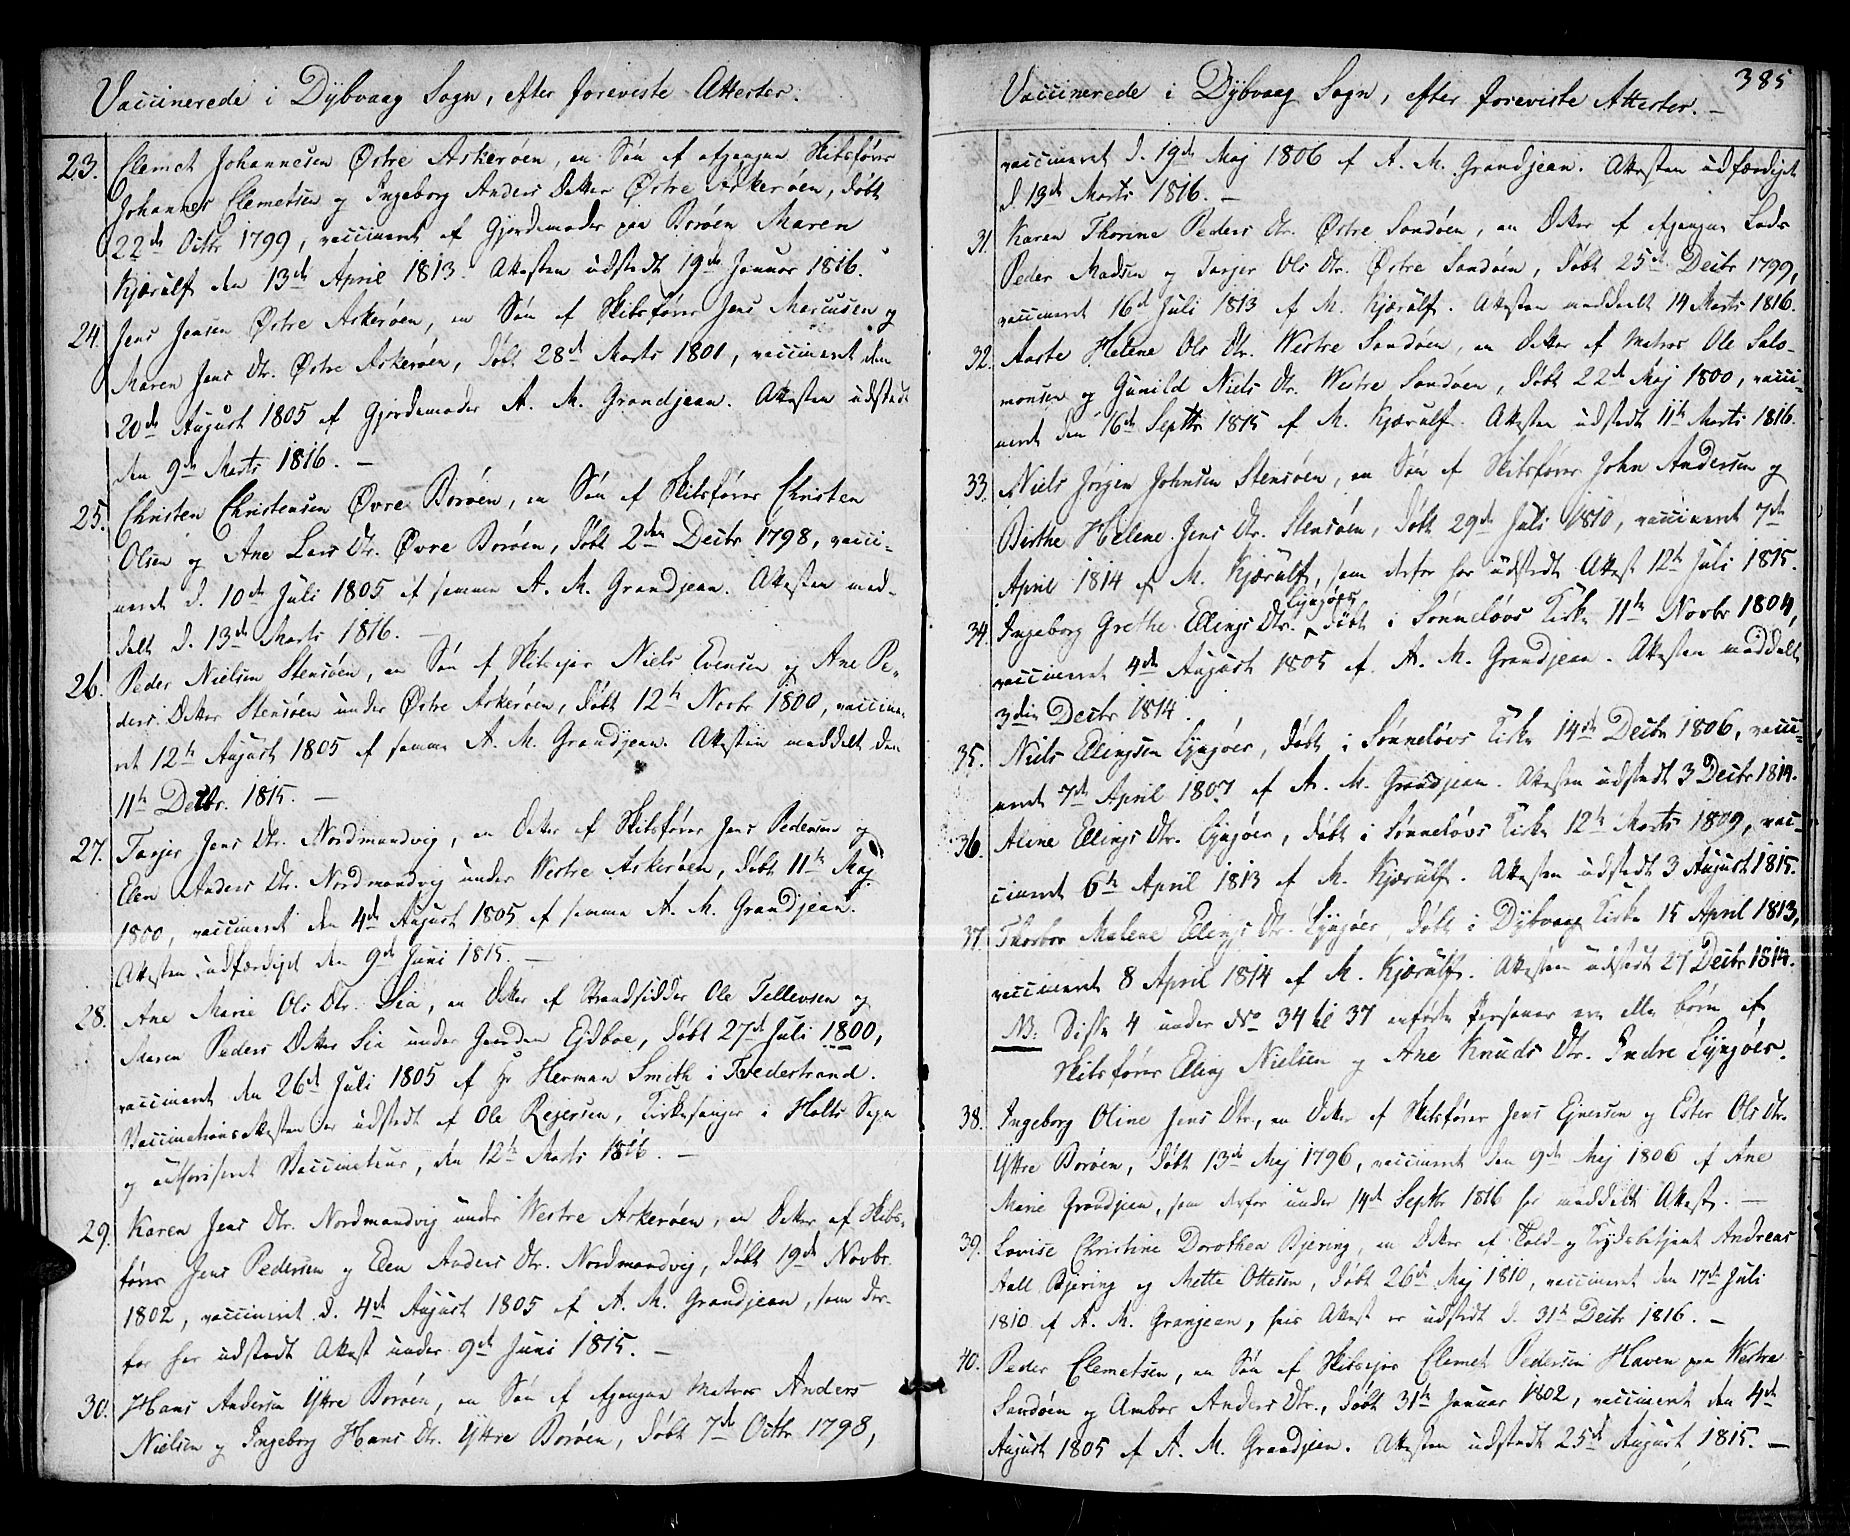 Vaccinerede i Dÿbvaag Sogn, efter foreviste Attester.
23. Clemet Johannesen Østre Askerøen, en Søn af afgangne Skibsfører
Johannes Clemetsen og Ingeborg Anders Datter Østre Askerøen, døbt
22de Octbr 1799, vaccineret af Gjordemoder paa Borøen Maren
Kjærulf den 13de April 1813. Attesten udstedt 19de Januar 1816.
24. Jens Jensen Østre Askerøen, en Søn af Skibsfører Jens Marcussen og
Maren Jens Dtr. Østre Askerøen, døbt 28de Marts 1801, vaccineret den
20de August 1805 af Gjordemoder A. M. Grandjean. Attesten udstedt
den 9de Marts 1816. —
25. Christen Christensen Øvre Borøen, en Søn af Skibsfører Christen
Olsen og Ane Lars Dtr. Øvre Borøen, døbt 2den Decbr 1798, vacci-
neret d. 10de Juli 1805 af samme A. M. Grandjean. Attesten med-
delt d. 13de Marts 1816. —
26. Peder Nielsen Stensøen, en Søn af Skibsejer Niels Evensen og Ane Pe-
ders Datter Stensøen under Østre Askerøen, døbt 12te Novbr 1800, vaccine-
ret 12te August 1805 af samme A. M. Grandjean. Attesten meddelt den
11te Decbr. 1815. —
27. Tarjer Jens Dtr. Nordmandvig, en Datter af Skibsfører Jens Pedersen og
Elen Anders Dtr. Nordmandvig under Westre Askerøen, døbt 11te Maj
1800, vaccineret den 4de August 1805 af samme A. M. Grandjean.
Attesten udfærdiget den 9de Juni 1815. —
28. Ane Marie Ols Dtr. Lia, en Datter af Strandsidder Ole Tellevsen og
Maren Peders Datter Lia under Gaarden Ejdboe, døbt 27de Juli 1800,
vaccineret den 26de Juli 1805 af Hr Herman Smith i Tvedestrand.
Vaccinationsattesten er udstedt af Ole Rejersen, Kirkesanger i Holts Sogn
og authoriseret Vaccinateur, den 12te Marts 1816. —
29. Karen Jens Dtr. Nordmandvig under Westre Askerøen, en Datter af Skibs-
fører Jens Pedersen og Elen Anders Dtr. Nordmandvig, døbt 19de Novbr.
1802, vaccineret d. 4de August 1805 af A. M. Grandjean, som der-
for har udstedt Attest under 9de Juni 1815. —
30. Hans Andersen Ÿttre Borøen, en Søn af afgangne Matros Anders
Nielsen og Ingeborg Hans Dtr. Ÿttre Borøen, døbt 7de Octbr. 1798,
385
Vaccinerede i Dÿbvaag Sogn, efter foreviste Attester. —
vaccineret d. 19de Maj 1806 af A. M. Grandjean. Attesten udfærdiget
d. 13de Marts 1816. —
31. Karen Thorine Peders Dtr. Østre Sandøen, en Datter af afgangne Lods
Peder Madsen og Tarjer Ols Dtr. Østre Sandøen, døbt 25de Decbr 1799,
vaccineret 16de Juli 1813 af M. Kjærulf. Attesten meddeelt 14 Marts 1816.
32. Aaste Helene Ols Dtr. Westre Sandøen, en Datter af Matros Ole Salo-
monsen og Gunild Niels Dtr. Westre Sandøen, døbt 22de Maj 1800, vacci-
neret den 16de Septbr 1815 af M. Kjærulf. Attesten udstedt 11te Marts 1816.
33. Niels Jörgen Johnsen Stensøen, en Søn af Skibsfører John Andersen og
Birthe Helene Jens Dtr. Stensøen, døbt 29de Juli 1810, vaccineret 7de
April 1814 af M. Kjærulf, som derfor har udstedt Attest 12te Juli 1815.
34. Ingeborg Grethe Ellings Dtr. Lÿngøer, døbt i Sønneløvs Kirke 11te Novbr 1804,
vaccineret 4de August 1805 af A. M. Grandjean. Attesten meddelt
3die Decbr 1814.
35. Niels Ellingsen Lÿngøer, døbt i Sønneløvs Kirke 14de Decbr 1806, vacci-
neret 7de April 1807 af A. M. Grandjean. Attesten udstedt 3 Decbr 1814.
36. Alene Ellings Dtr. Lÿngøer, døbt i Sønneløvs Kirke 12te Marts 1809, vac-
cineret 6te April 1813 af M. Kjærulf. Attesten udstedt 3 August 1815.
37. Thorbor Malene Ellings Dtr. Lÿngøer, døbt i Dÿbvaag Kirke 15 April 1813,
vaccineret 8 April 1814 af M. Kjærulf. Attesten udstedt 27 Decbr 1814.
NB: Disse 4 under No 34 til 37 anførte Personer ere alle børn af
Skibsfører Elling Nielsen og Ane Knuds Dtr. Indre Lÿngøer.
38. Ingeborg Oline Jens Dtr, en Datter af Skibsfører Jens Ejnersen og Ester Ols Dtr.
Ÿttre Borøen, døbt 13de Maj 1796, vaccineret den 9de Maj 1806 af Ane
Marie Grandjean, som derfor under 14de Septbr 1816 har meddelt Attest. —
39. Lovise Christine Dorothea Bjering, en Datter af Told- og Krydsbetjent Andreas
Aall Bjering og Mette Ottesen, døbt 26de Maj 1810, vaccineret den 17de Juli
1810 af A. M. Granjean, hvis Attest er udstedt d. 31te Decbr 1816. —
40. Peder Clemetsen, en Søn af Skibsejer Clemet Pedersen Haven paa Westre
Sandøen og Ambor Anders Dtr., døbt 31te Januar 1802, vaccineret den 4de
August 1805 af A. M. Grandjean. Attesten udstedt 25de August 1815. —